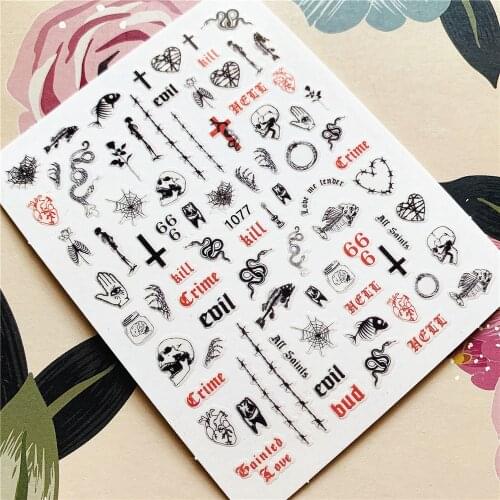 kill
evil
HELL
Crime
Love me tender
666
1077
kill
All Saints
666
kill
Crime
HELL
evil
All Saints
HELL
Crime
evil
bud
Tainted
Love